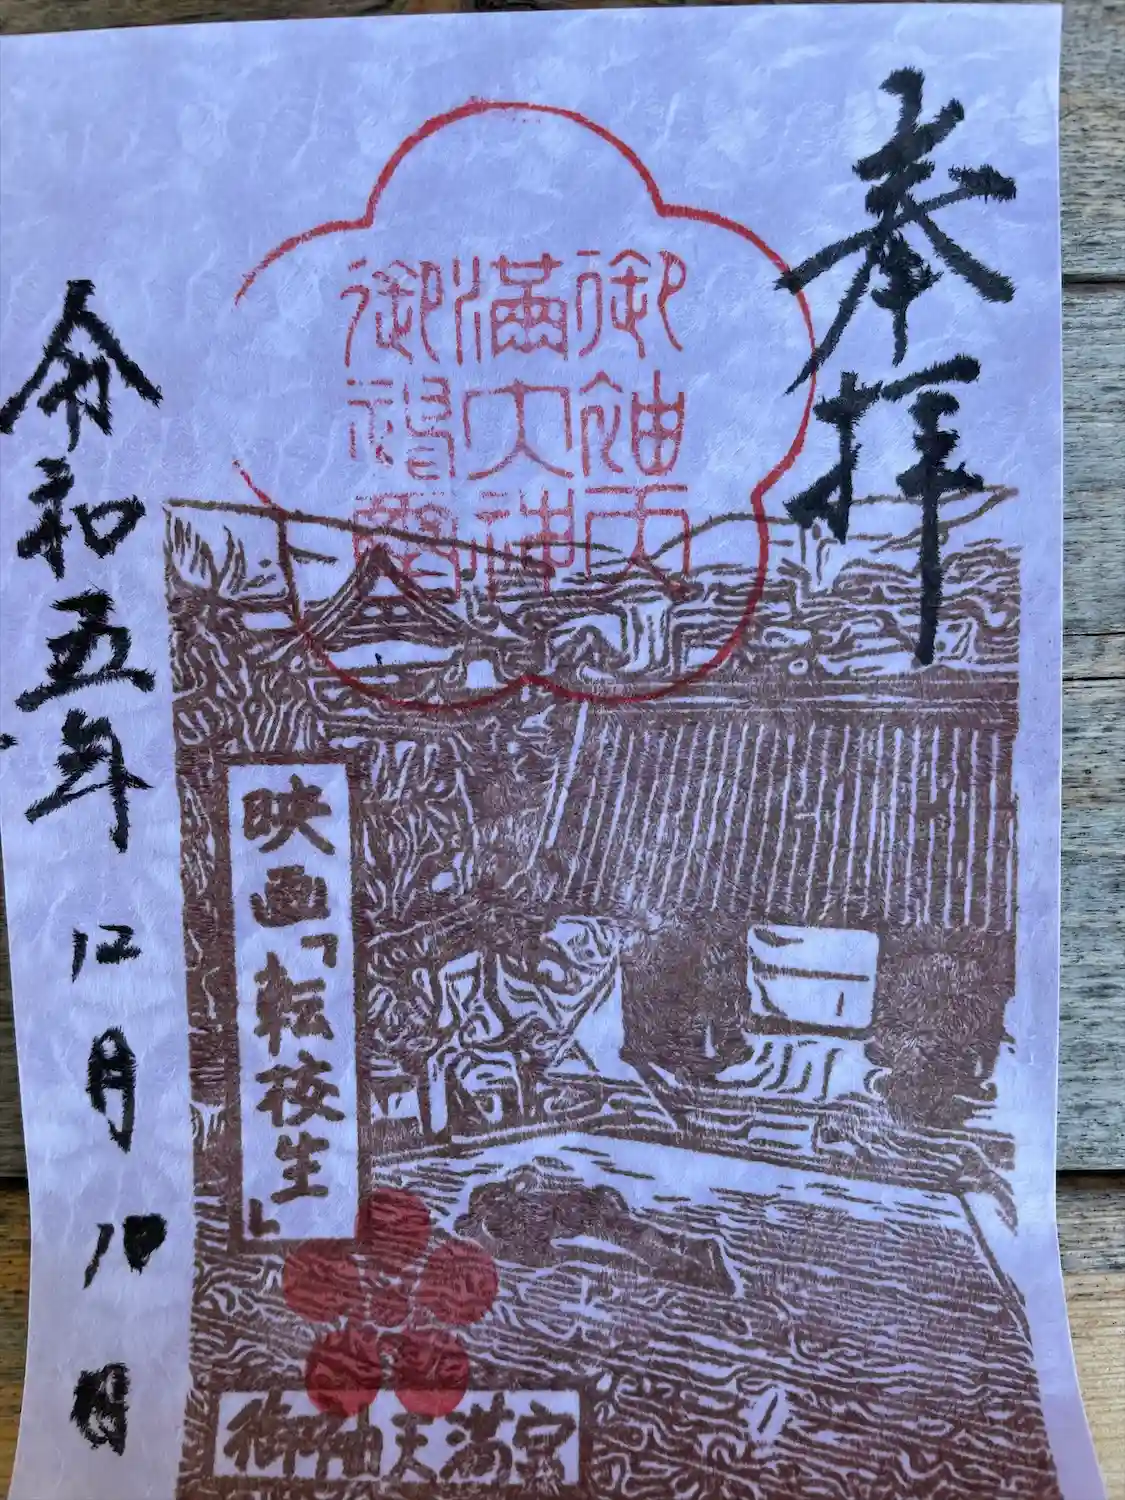 奉拝
御袖天
満大神
令和五年12月10日
映画「転校生」
御袖天満宮